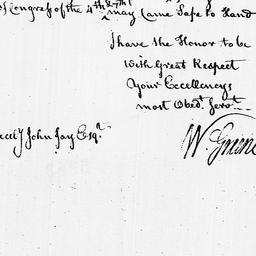 of Congress of the 4th & 7th may Came Safe to Hand
I have the Honor to be
With Great Respect
Your Excellencys
most Obedt. Servt.
W. Greene
Excely John Jay Esqr.